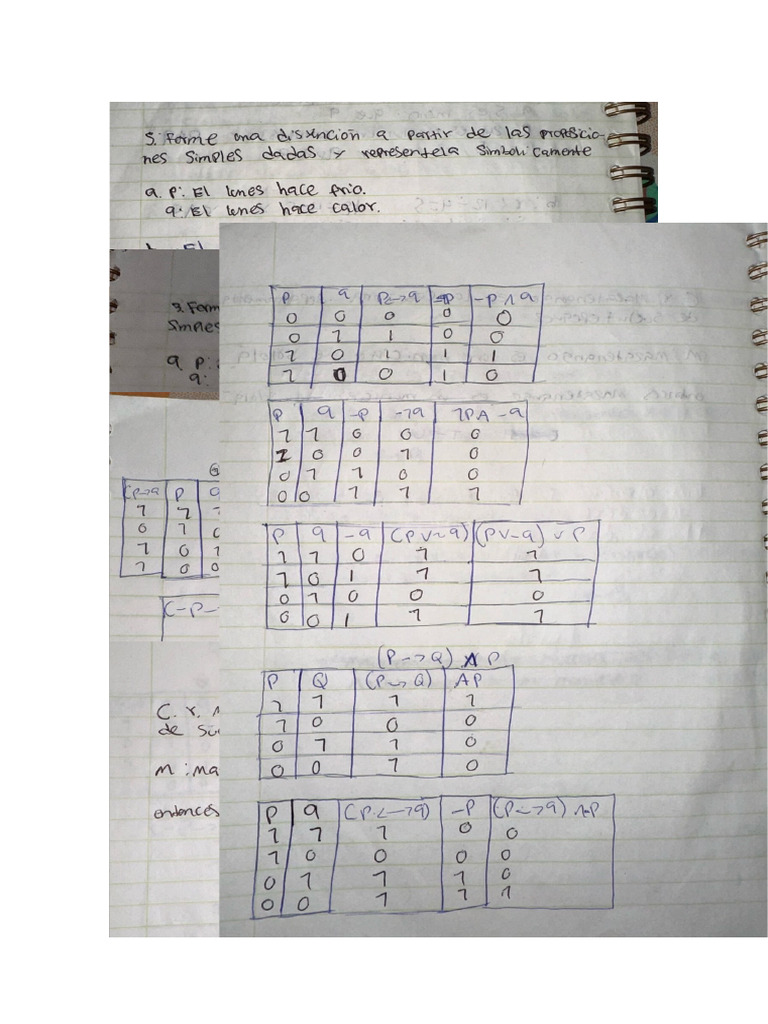 5. Forme una disyención a partir de las proposicio-
nes simples dadas y represéntela simbolicamente
a. p: El lunes hace frio.
q: El lunes hace calor.
3. Form
Simples
a. p:
q:
P q P<->q -P -P ∧ q
0 0 0 0 0
0 1 1 0 0
1 0 1 1 1
1 0 0 1 0
P q -P -q ¬P∧ -q
1 1 0 0 0
1 0 0 1 0
0 1 1 0 0
0 0 1 1 1
(P->q P q
1 1
0 1
1 0
1 0
(-P-
P q -q (P∨~q) (P∨-q) ∨ P
1 1 0 1 1
1 0 1 1 1
0 1 0 0 0
0 0 1 1 1
(P->Q) ∧ P
P Q (P->Q) ∧P
1 1 1 1
1 0 0 0
0 1 1 0
0 0 1 0
C. Y.
de Su
M : Ma
entonces
P q (P<->q) -P (P<->q) ∧-P
1 1 1 0 0
1 0 0 0 0
0 1 1 1 0
0 0 1 1 1